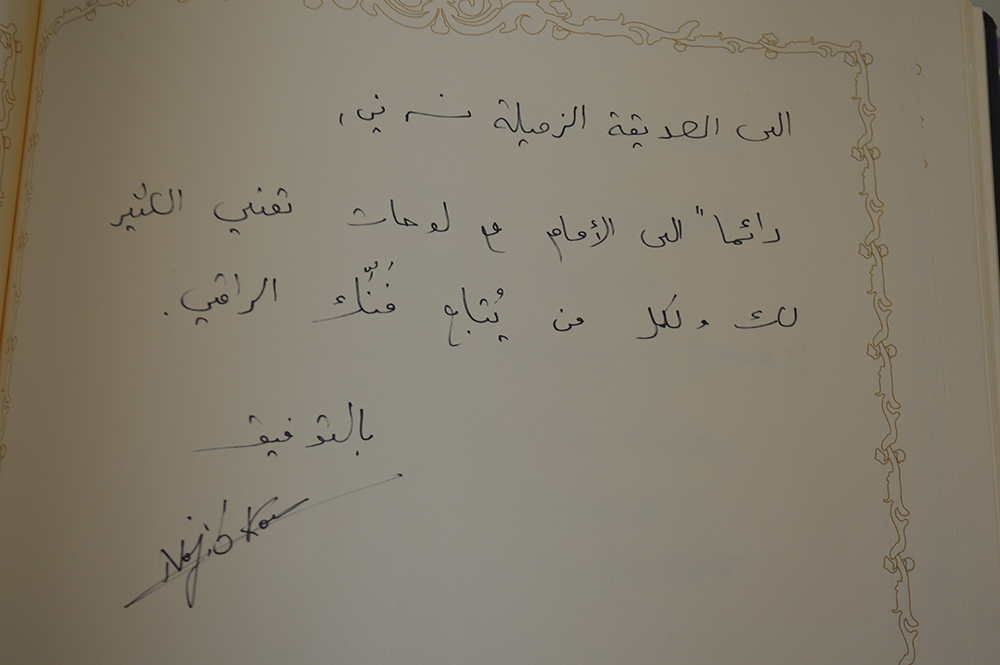 الى الصديقة الزميلة نسرين,
دائماً الى الأمام مع لوحات تعني الكثير
لك ولكل من يُتابع فَنّك الراقي.
بالتوفيق
Najib